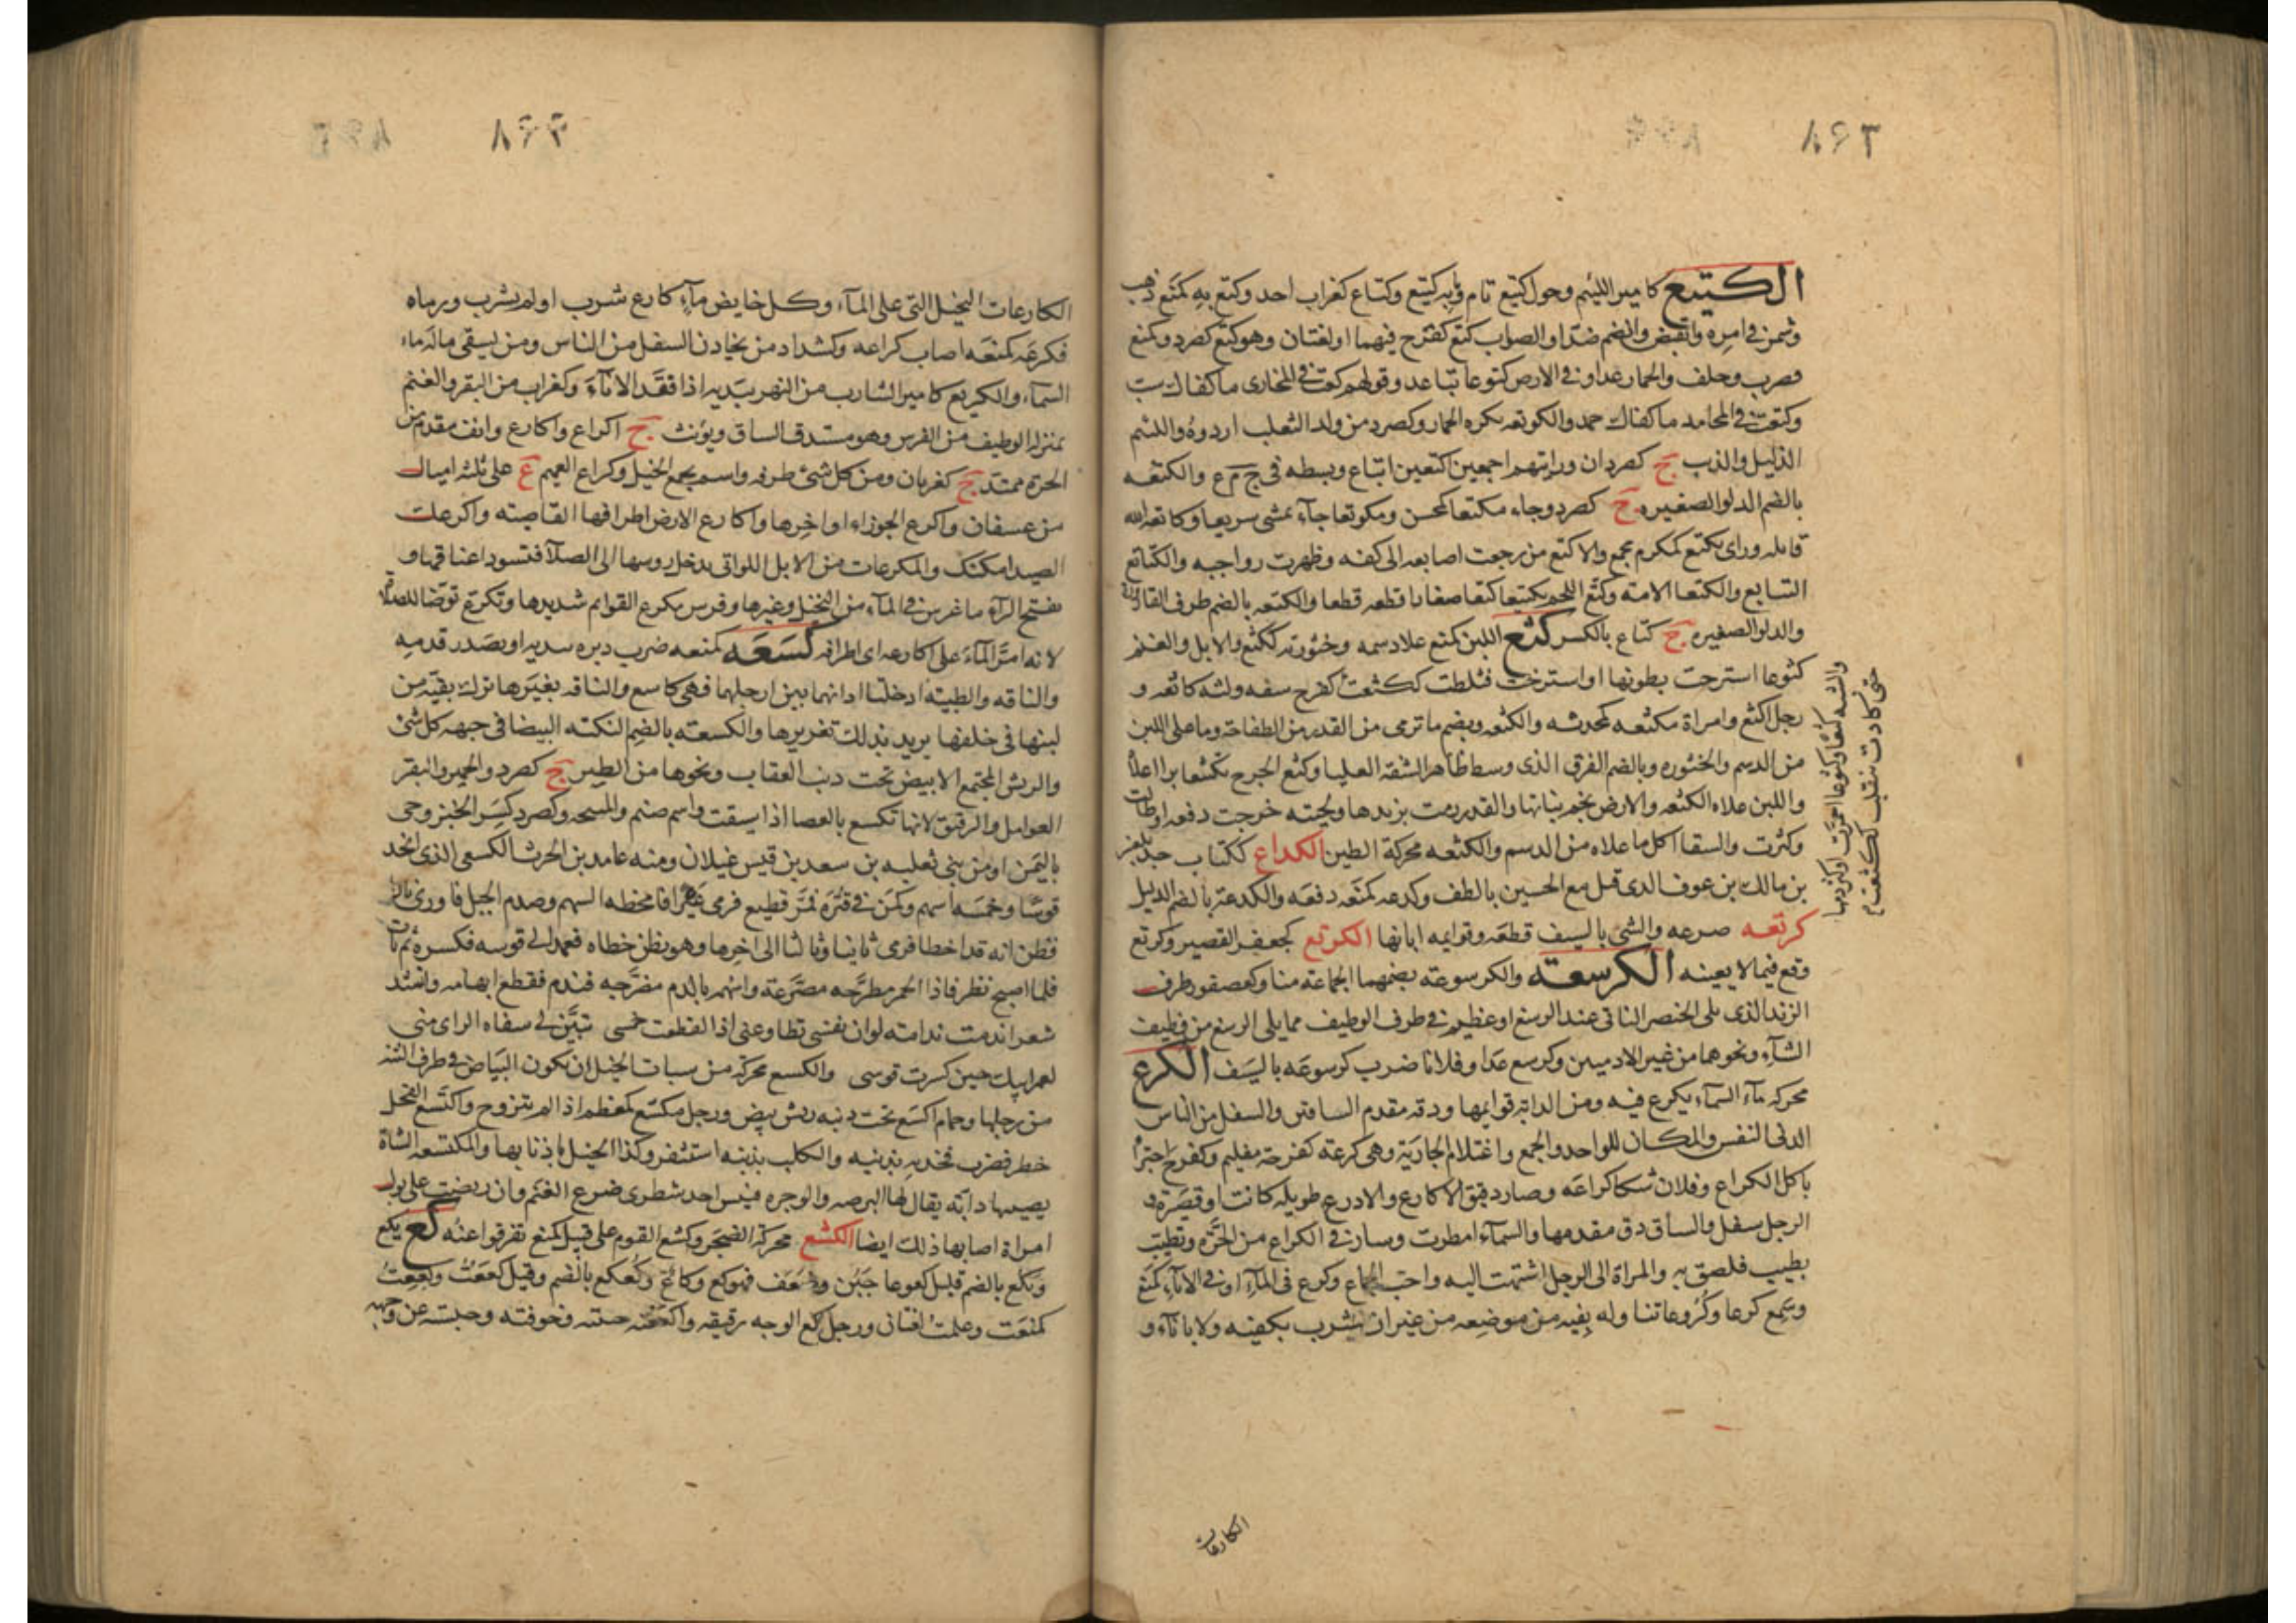 ٨٤٣
الكتيع كامير اللئيم وحول كتيع تام وما به كتيع وكتاع كغراب احد وكتع به كمنع ذهب
وشمر في امره وانقبض وانضم ضد او الصواب كتع كفرح فيهما او لغتان وهو كتع كصرد وكمنع
هرب وحلف والحمار عدا و في الارض كتوعا تباعد وقولهم كتعت في المخازى ما كفاك سب
وكتعت في المحامد ما كفاك حمد والكوتعه كمره الحمار وكصرد من ولد الثعلب اردوه واللئيم
الذليل والذيب ج كصردان ورايتهم اجمعين اكتعين اتباع وبسطه في ج م ع والكتعه
بالضم الدلو الصغيره ج كصرد وجاء مكتعا كمحسن ومكوتعا جاء يمشى سريعا وكاتعه الله
قاتله وراى مكتع كمكرم مجمع والاكتع من رجعت اصابعه الى كفه وظهرت رواجبه والكتائع
التتابع والكتعا الامة وكتع اللحم تكتيعا كتعا صغارا قطعه قطعا والكتعه بالضم طرف القارورة
والدلو الصغيره ج كتاع بالكسر كثع اللبن كمنع علا دسمه وخثورته ككثع والابل والغنم
كثوعا استرخت بطونها او استرخت فثلطت ككثعت كفرح شفه ولثه كاثعه و
رجل اكثع وامراة مكثعه كمحدثه والكثعه ويضم ما ترمى من القدر من الطفاحة وما على اللبن
من الدسم والخثوره وبالضم الفرق الذى وسط ظاهر الشفة العليا وكثع الجرح تكثيعا برا اعلاه
واللبن علاه الكثعه والارض نجم نباتها والقدر رمت بزبدها ولحيته خرجت دفعه او طالت
وكثرت والسقا اكل ما علاه من الدسم والكثعه محركة الطين الكداع ككتاب جد لمعن
بن مالك بن عوف الذى قتل مع الحسين بالطف وكدعه كمنعه دفعه والكدعة بالضم الذليل
كرتعه صرعه والشئ بالسيف قطعه وقوايمه ابانها الكرتع كجعفر القصير وكرتع
وقع فيما لا يعينه الكرسعة والكرسوعة بضمهما الجماعة منا وكعصفور طرف
الزند الذى يلى الخنصر الناتى عند الرسغ او عظيم في طرف الوظيف مما يلى الرسغ من وظيف
الشآء ونحوها من غير الادميين وكرسع عدا وفلانا ضرب كرسوعه بالسيف الكرع
محركه مآء السمآء يكرع فيه ومن الدابة قوايمها ودقه مقدم الساقين والسفل من الناس
الدنى النفس والمكان للواحد والجمع واغتلام الجارية وهى كرعة كفرحة مغليم وكفرح اجتزأ
باكل الكراع وفلان شكا كراعه وصار دقيق الاكارع والاذرع طويله كانت او قصيرة و
الرجل سفل والساق دق مقدمها والسمآء امطرت وسار في الكراع من الحره وتطيب
بطيب فلصق به والمراة الى الرجل اشتهت اليه واحب الجماع وكرع في المآء او في الاناء كمنع
وسمع كرعا وكروعا تناوله بفيه من موضعه من غير ان يشرب بكفيه ولا باناء و
والشفه كثعا وكثوعا احمرت او كثر دمها
حتى كادت تنقلب ككثعت
الكارعات
٨٤٤
الكارعات النخيل التى على المآء وكل خايض مآء كارع شرب او لم يشرب ورماه
فكرعه كمنعه اصاب كراعه وكشداد من يخادن السفل من الناس ومن يسقى ماله ماء
السمآء والكريع كامير الشارب من النهر بيديه اذا فقد الانآء وكغراب من البقر والغنم
بمنزله الوظيف من الفرس وهو مستدق الساق ويؤنث ج اكرع واكارع وانف مقدم من
الحرة ممتد ج كغربان ومن كل شئ طرفه واسم يجمع الخيل وكراع الغميم ع على ثلثه اميال
من عسفان واكرع الجوزاء اواخرها واكارع الارض اطرافها القاصيه واكرعك
الصيد امكنك والمكرعات من الابل اللواتى يدخل روسها الى الصلآ فتسود اعناقها و
بفتح الرآء ما غرس في المآء من النخيل وغيرها وفرس مكرع القوايم شديدها وتكرع توضا للصلاة
لانه امر المآء على اكارعه اى اطرافه كسعه كمنعه ضرب دبره بيديه او بصدر قدمه
والناقه والظبيه ادخلتا اذنابهما بين ارجلهما فهى كاسع والناقه بغيرها ترك بقيه من
لبنها في خلفها يريد بذلك تغزيرها والكسعه بالضم النكته البيضا في جبهه كل شئ
والريش المجتمع الابيض تحت ذنب العقاب ونحوها من الطير ج كصرد والحمير والبقر
العوامل والرقيق لانها تكسع بالعصا اذا سيقت واسم صنم والمسحه وكصرد كسر الخبز وحى
باليمن او من بنى ثعلبه بن سعد بن قيس غيلان ومنه عامد بن الحرث الكسعى الذى اتخذ
قوسا وخمسه اسهم وكمن في قترة فمر قطيع فرمى عيرا فامخطه السهم وصدم الجبل فاورى نارا
فظن انه قد اخطا فرمى ثانيا وثالثا الى اخرها وهو يظن خطاه فعمد الى قوسه فكسره ثم بات
فلما اصبح نظر فاذا الحمر مطرحه مصرعة واسهمه بالدم مضرجه فندم فقطع ابهامه وانشد
شعر ا ندمت ندامة لو ان نفسى تطاوعنى اذا لقطعت خمسى تبين لى سفاه الراى منى
لعمر ابيك حين كسرت قوسى والكسع محركة من سمات الخيل ان يكون البياض في طرف الثنه
من رجلها وحمام اكسع تحت ذنبه ريش بيض ورجل مكسع كمعظم اذا لم يتزوج واكتسع الفحل
خطر فضرب فخذيه بذنبه والكلب بذنبه استثفر وكذا الخيل باذنابها والمكتسعه الشاة
يصيبها دابة يقال لها البرصه والوجره فييبس احد شطرى ضرع الغنم وان ربضت على بول
امراة اصابها ذلك ايضا الكشع محركة الضجر وكشع القوم على قتيل كمنع تفرقوا عنه كع يكع
ويكع بالضم قليل كعوعا جبن وضعف فهو كع وكاع وكعكع بالضم وقيل كععت وكععت
كمنعت وعلمت لغتان ورجل كع الوجه رقيقه واكعه جبنه وخوفه وحبسه عن وجهه